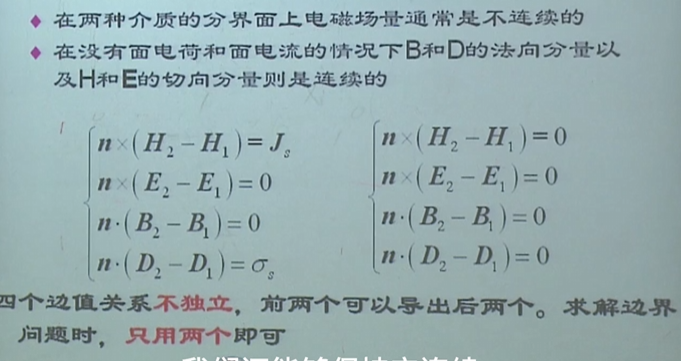 ◆ 在两种介质的分界面上电磁场量通常是不连续的
◆ 在没有面电荷和面电流的情况下B和D的法向分量以
及H和E的切向分量则是连续的
n×(H₂−H₁)=Jₛ
n×(E₂−E₁)=0
n·(B₂−B₁)=0
n·(D₂−D₁)=σₛ
n×(H₂−H₁)=0
n×(E₂−E₁)=0
n·(B₂−B₁)=0
n·(D₂−D₁)=0
四个边值关系不独立，前两个可以导出后两个。求解边界
问题时，只用两个即可